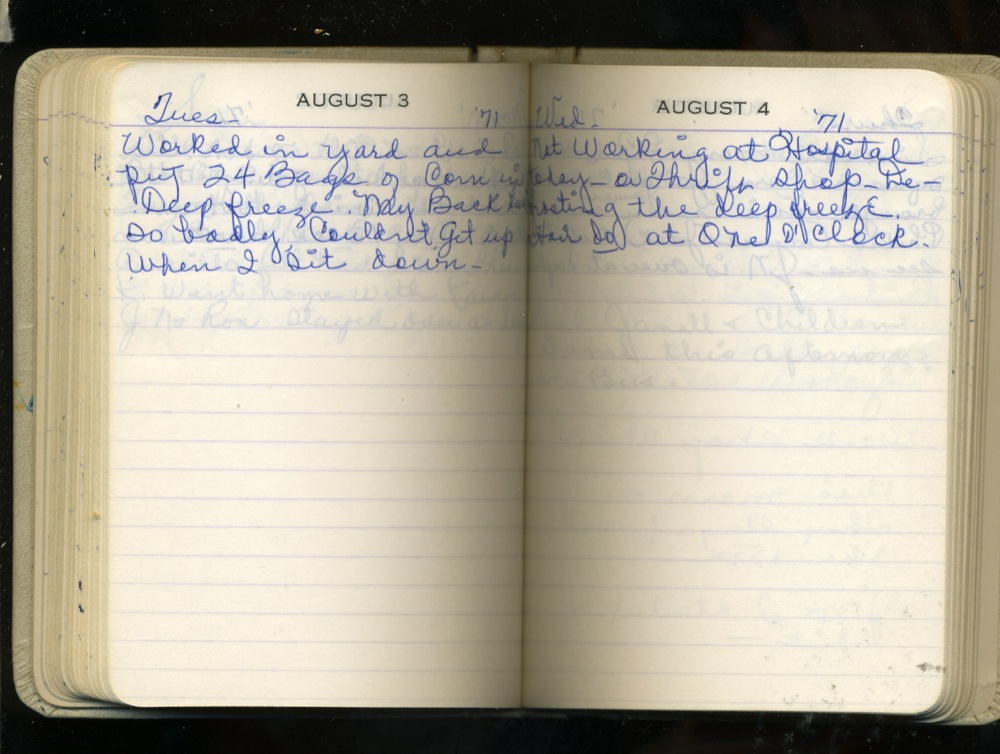 AUGUST 3
Tues- '71
Worked in yard and
put 24 Bags of Corn in
Deep freeze. My Back
So badly, Couldn't Get up
When I Sit down-
AUGUST 4
Wed- '71
Not Working at Hospital
today- or Thrift Shop- De-
frosting the deep freeze.
Hair Do at One O'Clock.